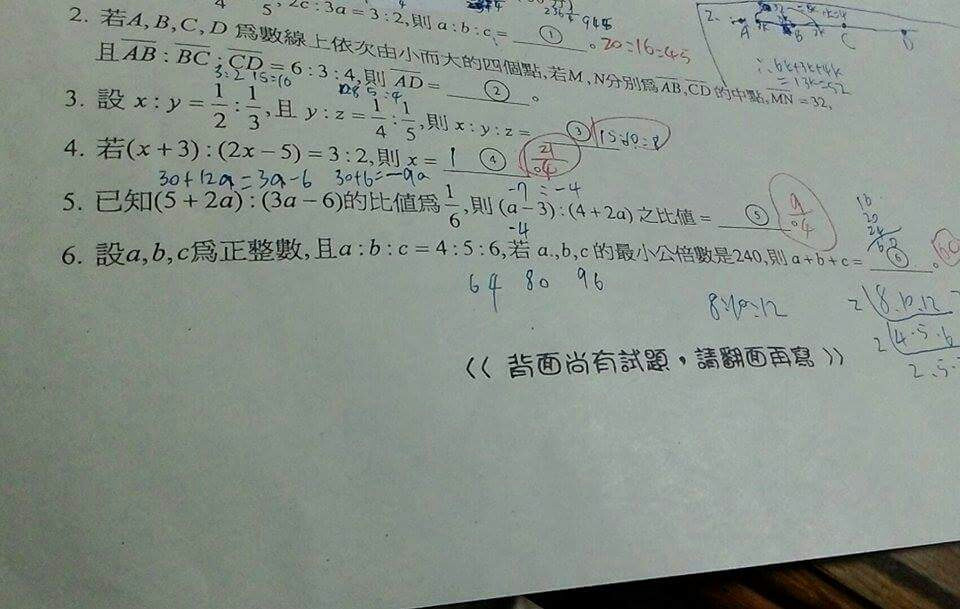 4 5, 2c : 3a = 3 : 2, 則 a : b : c = ① 。 20=16=45
2. 若A, B, C, D 爲數線上依次由小而大的四個點, 若M, N分別爲AB, CD 的中點, MN = 32,
且 AB : BC : CD = 6 : 3 : 4, 則 AD = ② 。
3. 設 x : y = 1/2 : 1/3, 且 y : z = 1/4 : 1/5, 則 x : y : z = ③ 15:10:8
4. 若(x + 3) : (2x − 5) = 3 : 2, 則 x = 1 ④ 21/4
30+12a=3a-6 30+6=-9a
5. 已知(5 + 2a) : (3a − 6)的比值爲 1/6, 則 (a − 3) : (4 + 2a) 之比值 = ⑤
-7 = -4
-4
6. 設a, b, c爲正整數, 且a : b : c = 4 : 5 : 6, 若 a, b, c 的最小公倍數是240, 則 a + b + c = ⑥ 。
64 80 96
8:10:12
2 8.10.12
2 4.5.6
2.5.
《 背面尚有試題，請翻面再寫 》
2. A B C D
∴ 6k+3k+4k
= 13k=52
16
20
24
60